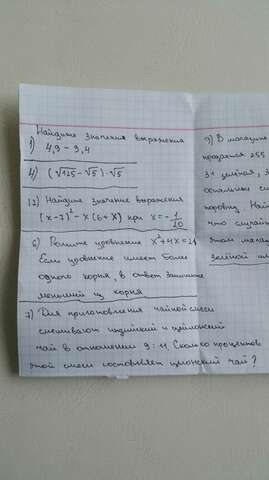 Найдите значения выражения
1) 4,9 - 9,4
4) (√125 - √5) · √5
12) Найдите значение выражения
(x-7)² - x(6+x) при x = -1/20
6) Решите уравнение x²+4x=21
Если уравнение имеет более
одного корня, в ответ запишите
меньший из корня
7) Для приготовления чайной смеси
смешивают индийский и цейлонский
чай в отношении 9:11. Сколько процентов
этой смеси составляет цейлонский чай?
9) В магазине
продается 255
31 зелёная,
остальные си
поровну. Най
что случайн
этом мага
зелёной ил